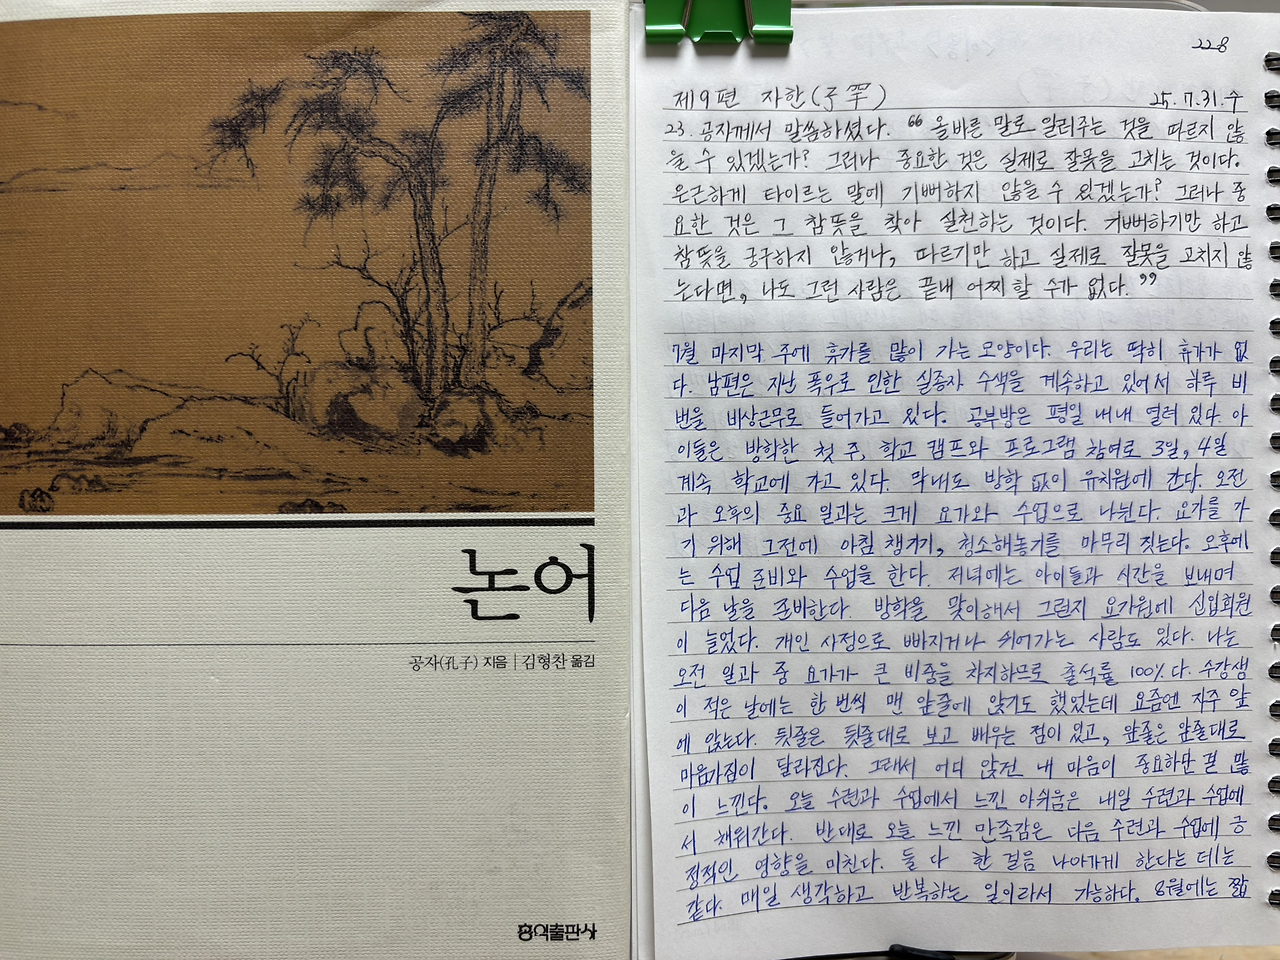 논어
공자(孔子) 지음 | 김형찬 옮김
홍익출판사
228
제9편 자한(子罕) 25.7.31.수
23. 공자께서 말씀하셨다. “올바른 말로 일러주는 것을 따르지 않
을 수 있겠는가? 그러나 중요한 것은 실제로 잘못을 고치는 것이다.
은근하게 타이르는 말에 기뻐하지 않을 수 있겠는가? 그러나 중
요한 것은 그 참뜻을 찾아 실천하는 것이다. 기뻐하기만 하고
참뜻을 궁구하지 않거나, 따르기만 하고 실제로 잘못을 고치지 않
는다면, 나도 그런 사람은 끝내 어찌 할 수가 없다.”
7월 마지막 주에 휴가를 많이 가는 모양이다. 우리는 딱히 휴가가 없
다. 남편은 지난 폭우로 인한 실종자 수색을 계속하고 있어서 하루 비
번을 비상근무로 들어가고 있다. 공부방은 평일 내내 열려 있다. 아
이들은 방학한 첫 주, 학교 캠프와 프로그램 참여로 3일, 4일
계속 학교에 가고 있다. 막내도 방학 없이 유치원에 간다. 오전
과 오후의 중요 일과는 크게 요가와 수업으로 나뉜다. 요가를 가
기 위해 그전에 아침 챙기기, 청소해놓기를 마무리 짓는다. 오후에
는 수업 준비와 수업을 한다. 저녁에는 아이들과 시간을 보내며
다음 날을 준비한다. 방학을 맞이해서 그런지 요가원에 신입회원
이 늘었다. 개인 사정으로 빠지거나 쉬어가는 사람도 있다. 나는
오전 일과 중 요가가 큰 비중을 차지하므로 출석률 100%다. 수강생
이 적은 날에는 한 번씩 맨 앞줄에 앉기도 했었는데 요즘엔 자주 앞
에 앉는다. 뒷줄은 뒷줄대로 보고 배우는 점이 있고, 앞줄은 앞줄대로
마음가짐이 달라진다. 그래서 어디 앉건 내 마음이 중요하단 걸 많
이 느낀다. 오늘 수련과 수업에서 느낀 아쉬움은 내일 수련과 수업에
서 채워간다. 반대로 오늘 느낀 만족감은 다음 수련과 수업에 긍
정적인 영향을 미친다. 둘 다 한 걸음 나아가게 한다는 데는
같다. 매일 생각하고 반복하는 일이라서 가능하다. 8월에는 짧